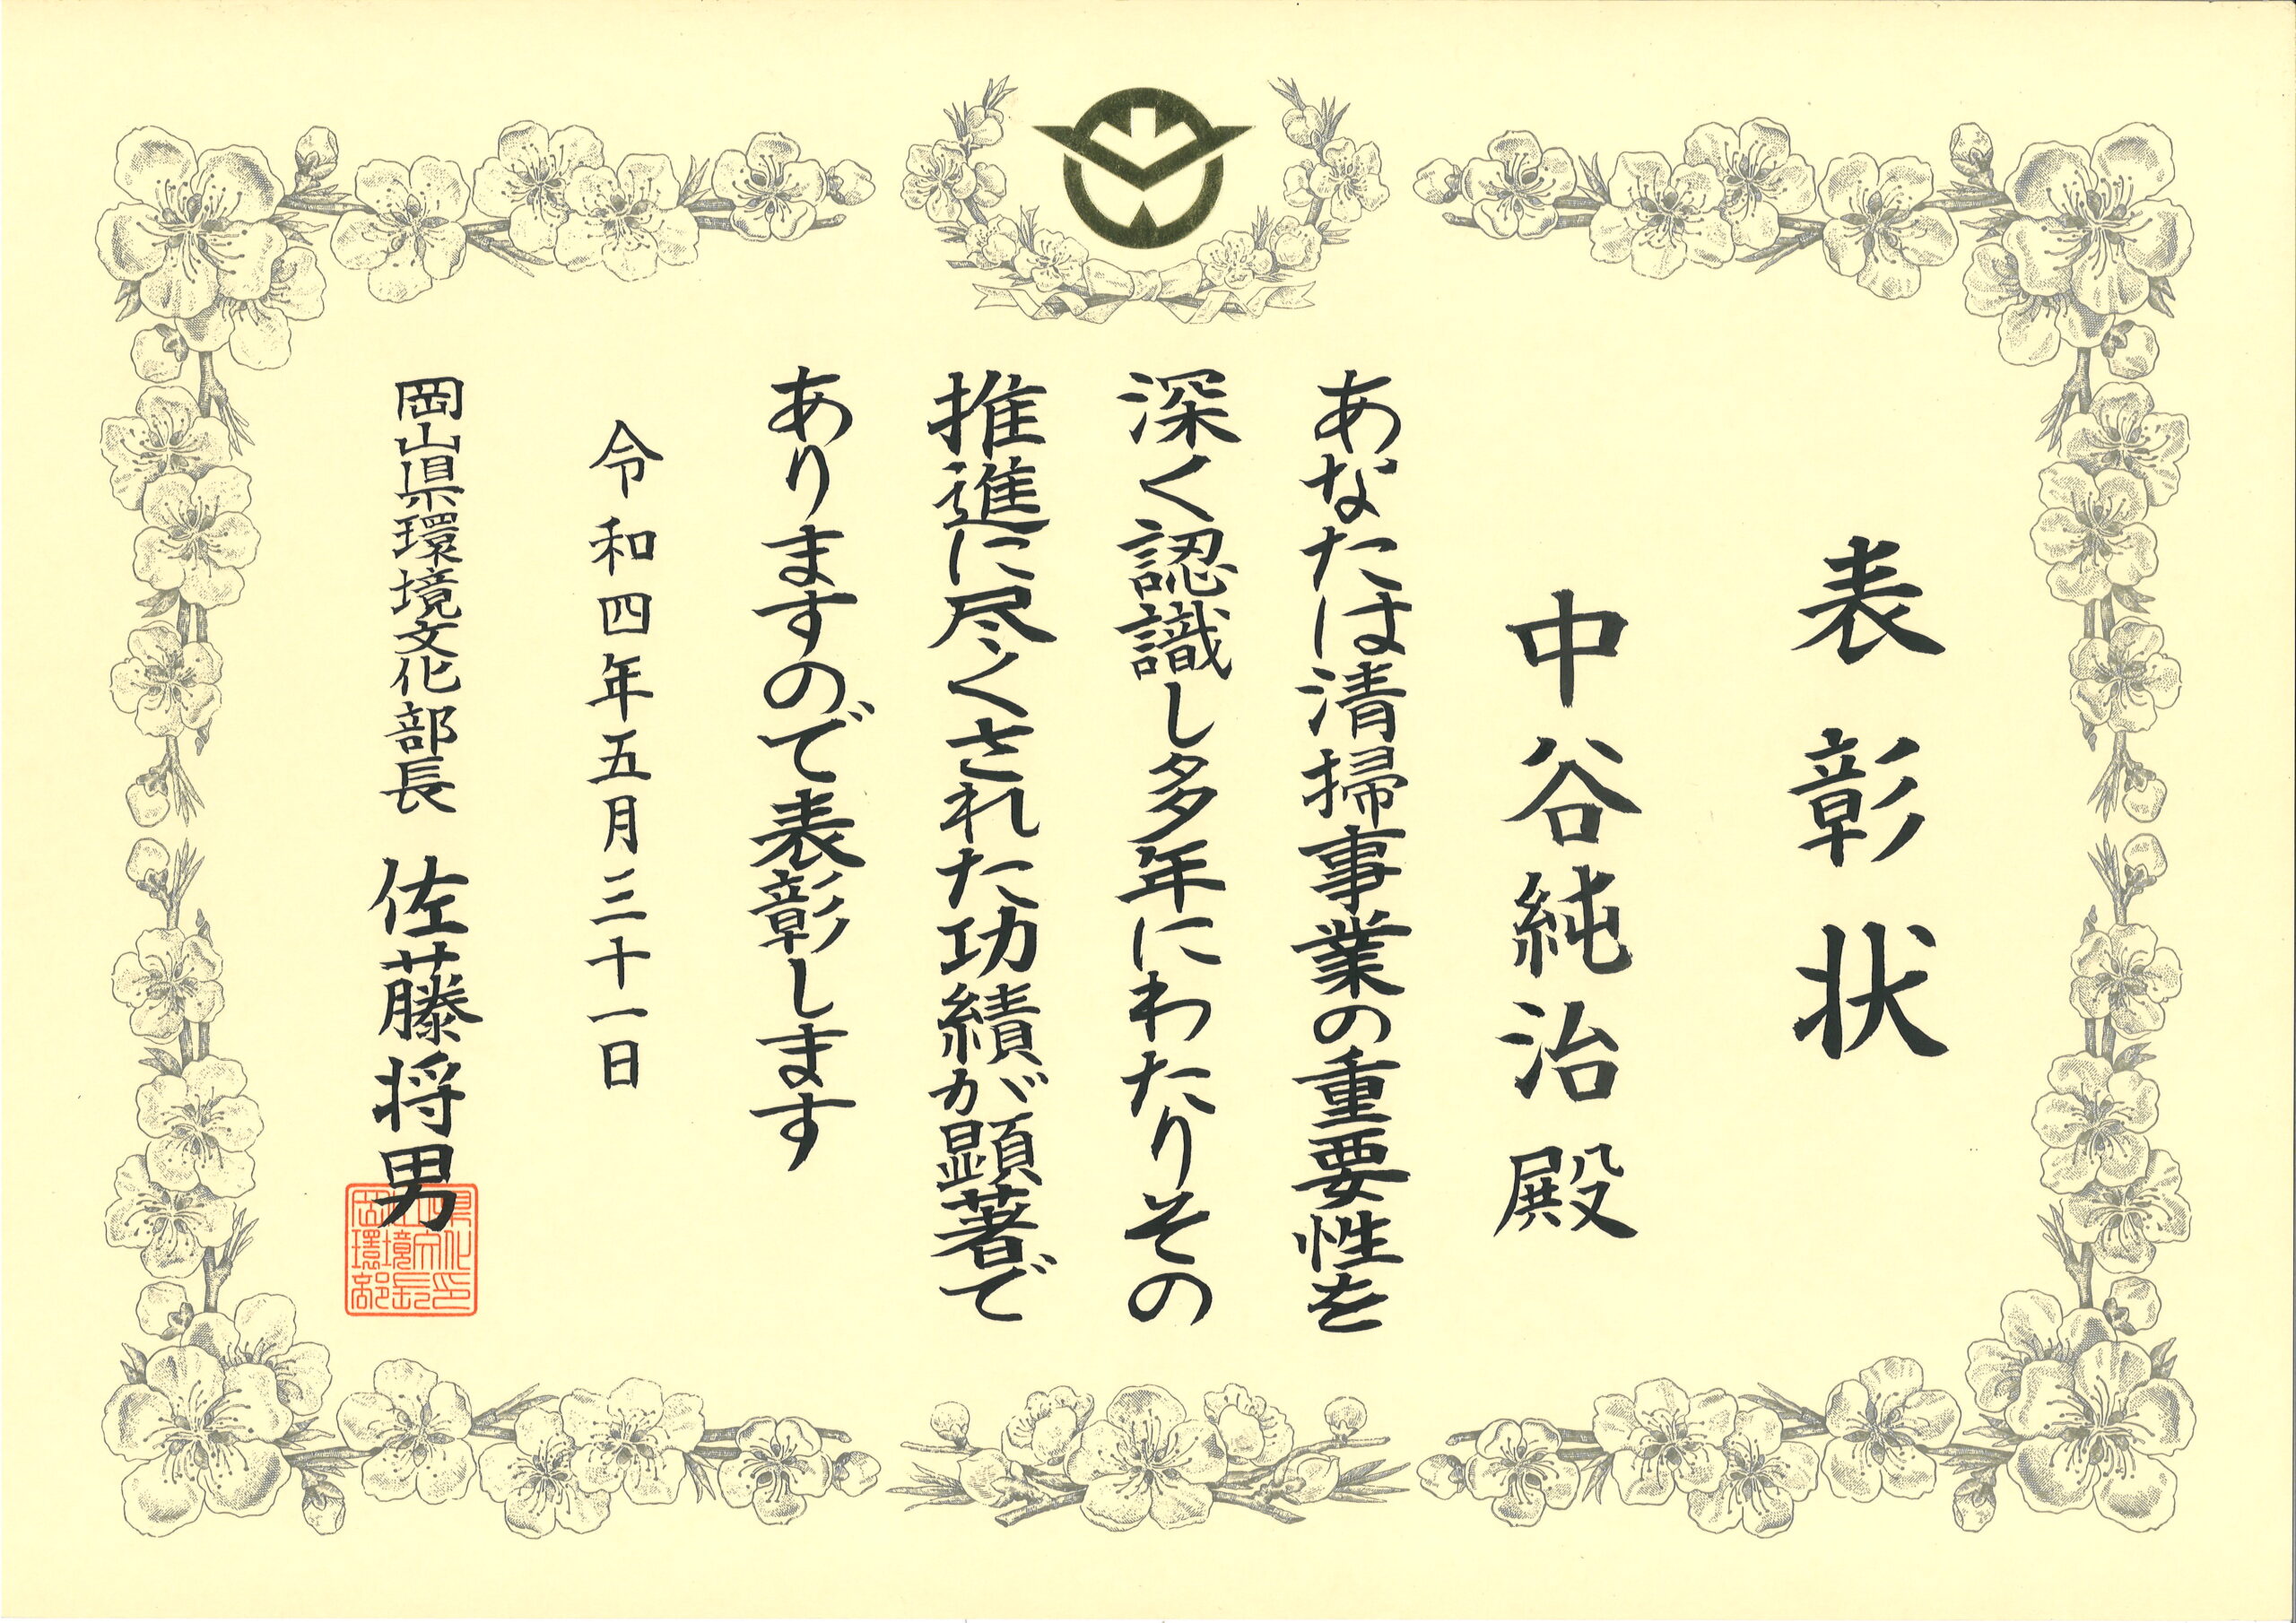 表彰状
中谷純治殿
あなたは清掃事業の重要性を
深く認識し多年にわたりその
推進に尽くされた功績が顕著で
ありますので表彰します
令和四年五月三十一日
岡山県環境文化部長 佐藤将男
岡山県環境文化部長印